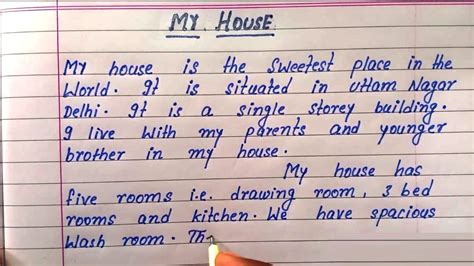 MY HOUSE
My house is the sweetest place in the
World. It is situated in Uttam Nagar
Delhi. It is a single storey building.
I live with my parents and younger
brother in my house.
My house has
five rooms i.e. drawing room, 3 bed
rooms and kitchen. We have spacious
Wash room. Th